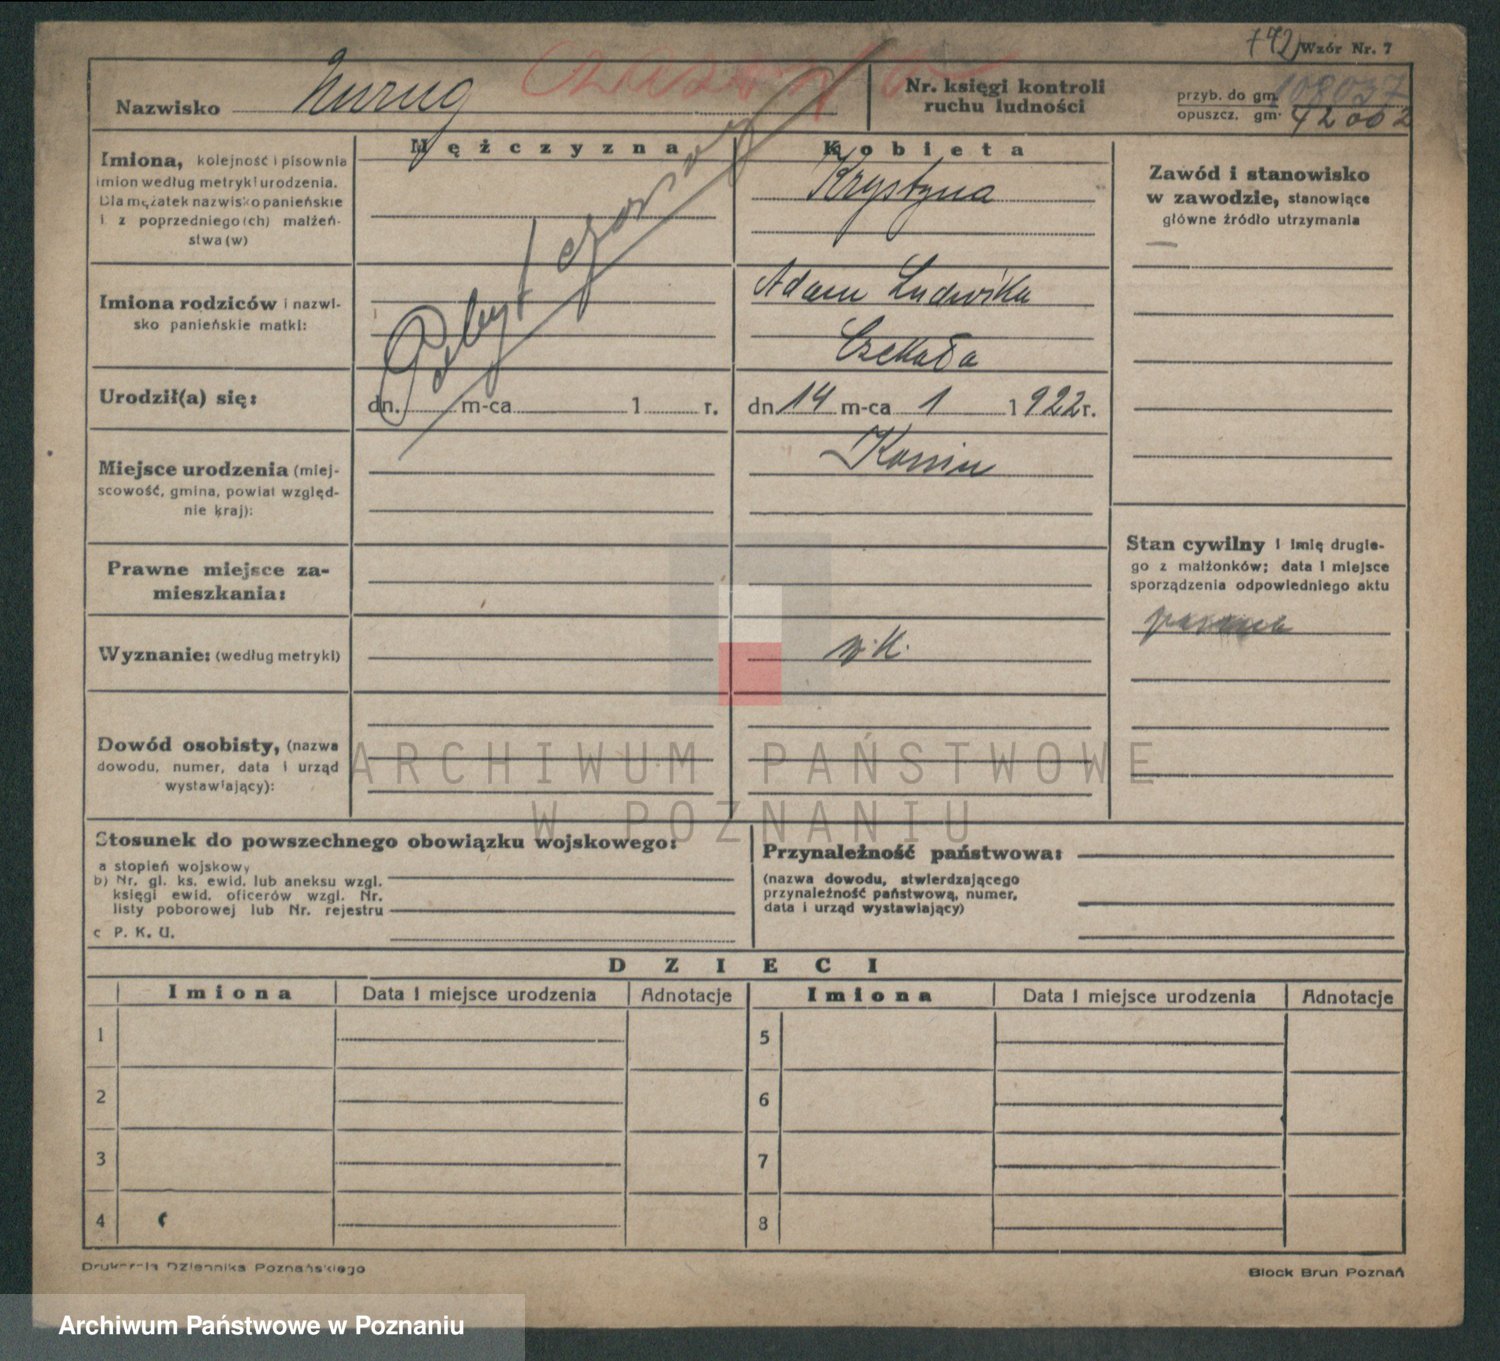 742 Wzór Nr. 7
Nazwisko
Nr. księgi kontroli
ruchu ludności
przyb. do gm. 108037
opuszcz. gm. 42002
Mężczyzna
Kobieta
Imiona, kolejność i pisownia
imion według metryki urodzenia.
Dla mężatek nazwisko panieńskie
i z poprzedniego(ch) małżeń-
stwa(w)
Krystyna
Zawód i stanowisko
w zawodzie, stanowiące
główne źródło utrzymania
Pobyt czasowy
Imiona rodziców i nazwi-
sko panieńskie matki:
Adam Ludwika
Czekała
Urodził(a) się:
dn. m-ca 1 r.
dn 14 m-ca 1 1922 r.
Miejsce urodzenia (miej-
scowość, gmina, powiat względ-
nie kraj):
Konin
Stan cywilny i imię drugie-
go z małżonków; data i miejsce
sporządzenia odpowiedniego aktu
panna
Prawne miejsce za-
mieszkania:
Wyznanie: (według metryki)
rz. k.
Dowód osobisty, (nazwa
dowodu, numer, data i urząd
wystawiający):
ARCHIWUM PAŃSTWOWE
W POZNANIU
Stosunek do powszechnego obowiązku wojskowego:
a stopień wojskowy
b) Nr. gl. ks. ewid. lub aneksu wzgl.
księgi ewid. oficerów wzgl. Nr.
listy poborowej lub Nr. rejestru
c P. K. U.
Przynależność państwowa:
(nazwa dowodu, stwierdzającego
przynależność państwową, numer,
data i urząd wystawiający)
DZIECI
Imiona Data i miejsce urodzenia Adnotacje Imiona Data i miejsce urodzenia Adnotacje
1 5
2 6
3 7
4 8
Drukarnia Dziennika Poznańskiego
Block Brun Poznań
Archiwum Państwowe w Poznaniu